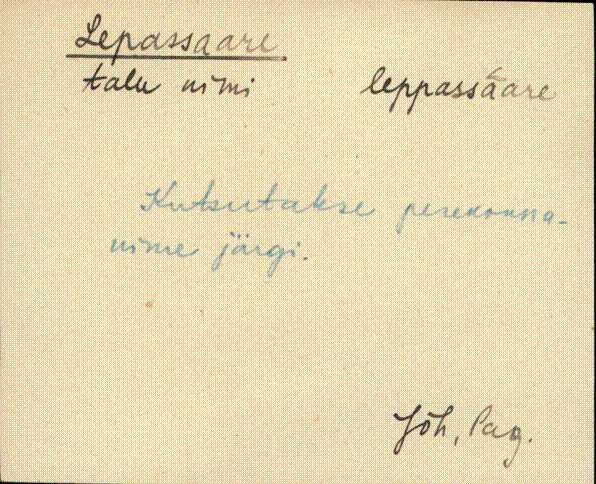 Lepassaare
talu nimi leppassàare
Kutsutakse perekonna-
nime järgi.
Jõh, Pag.